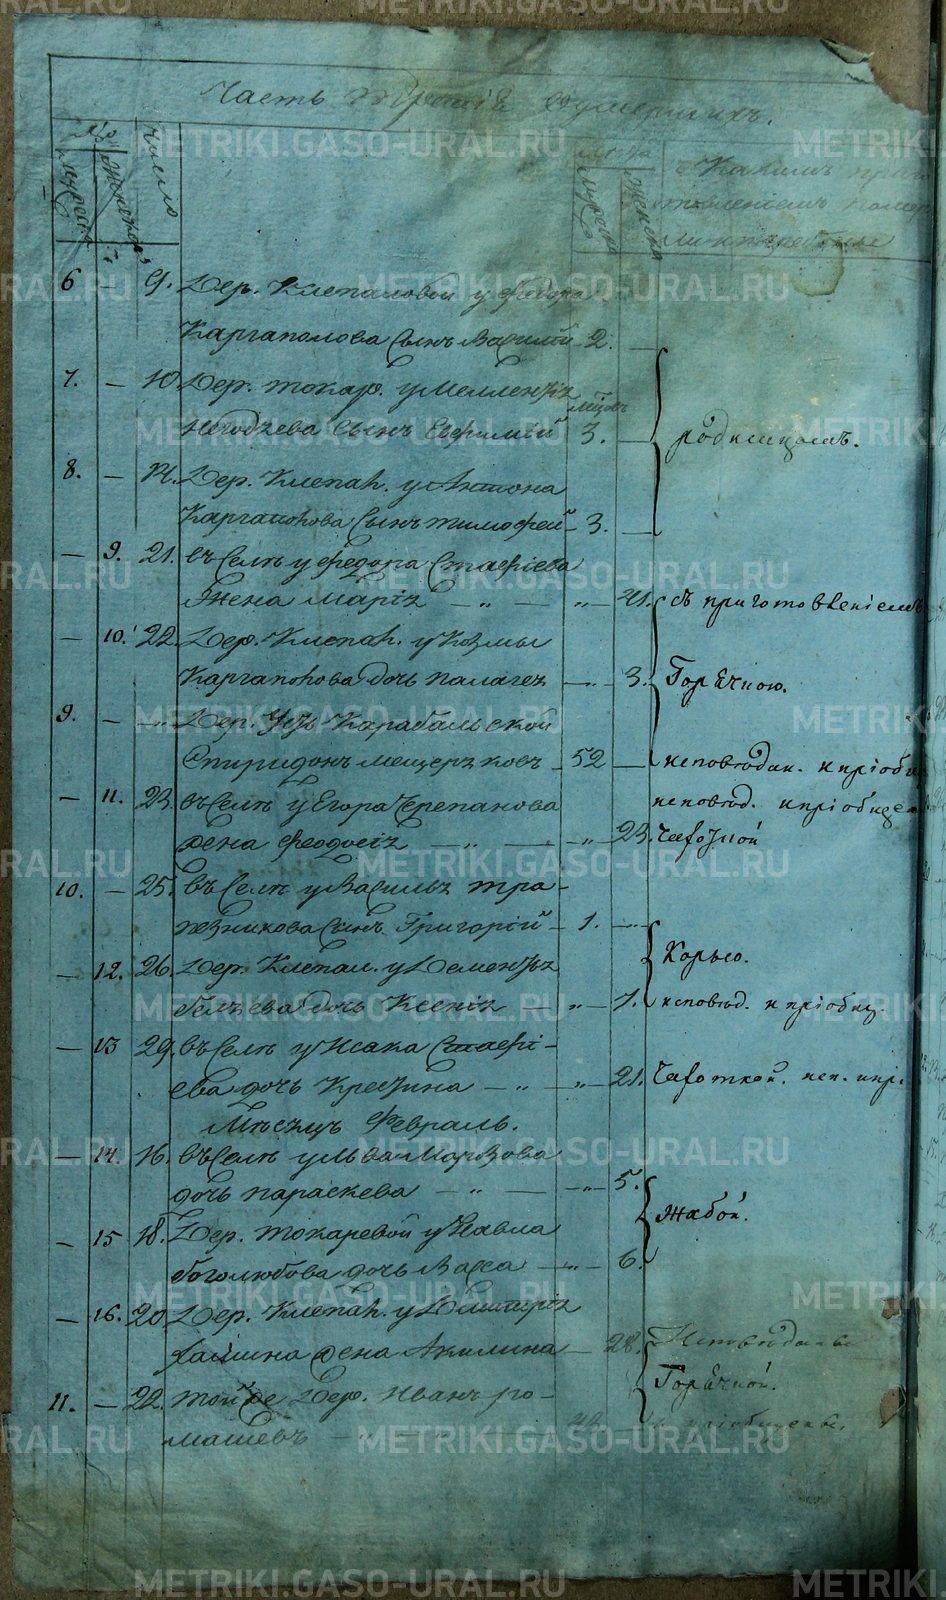 Часть третія о умершихъ.
№ мужеска
№ женска
число
лѣта
мужеска
женска
Какимъ
6 — 9. Дер. Клепаловой у Федора
Каргаполова сынъ Василій 2. —
7. — 10. Дер. Токар. у Меллентія
мѣсцъ
сынъ Евфимій 3. —
родимцомъ.
8. — 14. Дер. Клепал. у Антона
Каргаполова сынъ Тимофей — 3. —
— 9. 21. въ селѣ у Федора Стафіева
жена Марія — „ — „ — 41. съ приготовленіемъ
— 10. 22. Дер. Клепал. у Козмы
Каргаполова дочь Палагея — „ — 3. Горячкою.
9. — „ Дер. Усть Карабальской
Спиридонъ Мещеряковъ — 52 — исповѣдан. и пріобщ
— 11. 23. въ селѣ у Егора Черепанова исповѣд. и пріобщен
жена Феодосія — „ — „ — 23. чахоткой
10. — 25. въ селѣ у Василья Тра-
пезникова сынъ Григорій — 1. —
Корью.
— 12. 26. Дер. Клепал. у Дементья
дочь Ксенія „ — 7. исповѣд. и пріобщ.
— 13 29. въ селѣ у Исака Стафі-
ева дочь Крестина — „ — „ — 21. Чахоткой. исп. и прі.
Мѣсяцъ Февраль.
— 14. 16. въ селѣ у Льва Морозова
дочь Параскева — „ — „ — 5.
Жабой.
— 15 18. Дер. Токаревой у Павла
Боголюбова дочь Васса — „ — 6.
— 16. 20. Дер. Клепал. у Дмитрія
жена Акилина — 28. Исповѣданы
Горячкой.
11. — 22. той же Дер. Иванъ Ро-
машевъ — „ — и пріобщены.
METRIKI.GASO-URAL.RU